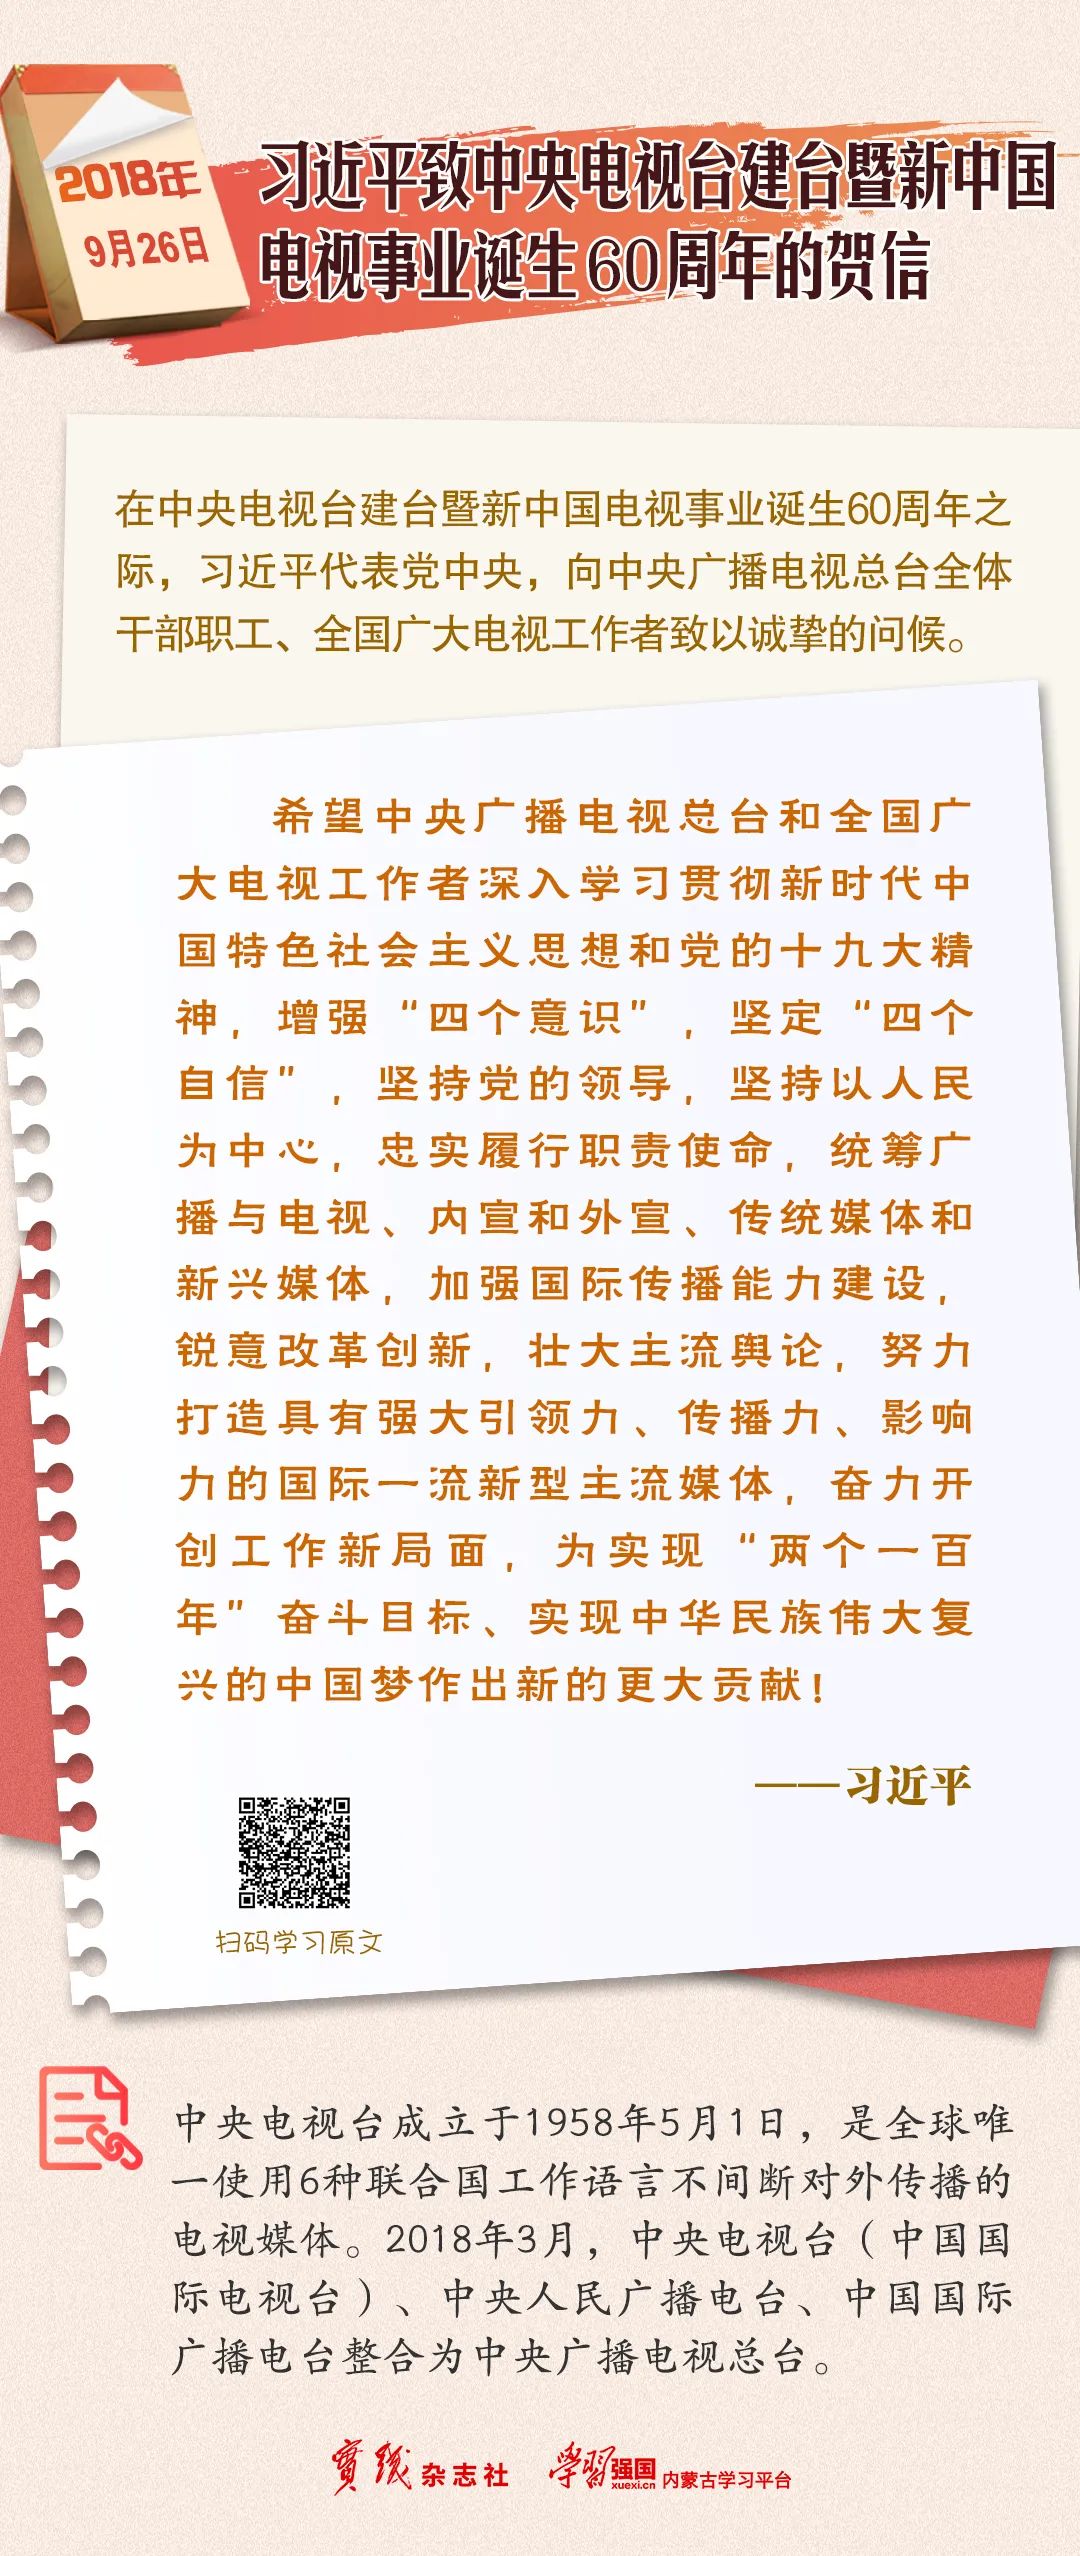 2018年
9月26日
习近平致中央电视台建台暨新中国
电视事业诞生60周年的贺信
在中央电视台建台暨新中国电视事业诞生60周年之
际，习近平代表党中央，向中央广播电视总台全体
干部职工、全国广大电视工作者致以诚挚的问候。
希望中央广播电视总台和全国广
大电视工作者深入学习贯彻新时代中
国特色社会主义思想和党的十九大精
神，增强“四个意识”，坚定“四个
自信”，坚持党的领导，坚持以人民
为中心，忠实履行职责使命，统筹广
播与电视、内宣和外宣、传统媒体和
新兴媒体，加强国际传播能力建设，
锐意改革创新，壮大主流舆论，努力
打造具有强大引领力、传播力、影响
力的国际一流新型主流媒体，奋力开
创工作新局面，为实现“两个一百
年”奋斗目标、实现中华民族伟大复
兴的中国梦作出新的更大贡献！
——习近平
扫码学习原文
中央电视台成立于1958年5月1日，是全球唯
一使用6种联合国工作语言不间断对外传播的
电视媒体。2018年3月，中央电视台（中国国
际电视台）、中央人民广播电台、中国国际
广播电台整合为中央广播电视总台。
實践杂志社 学习强国 xuexi.cn 内蒙古学习平台